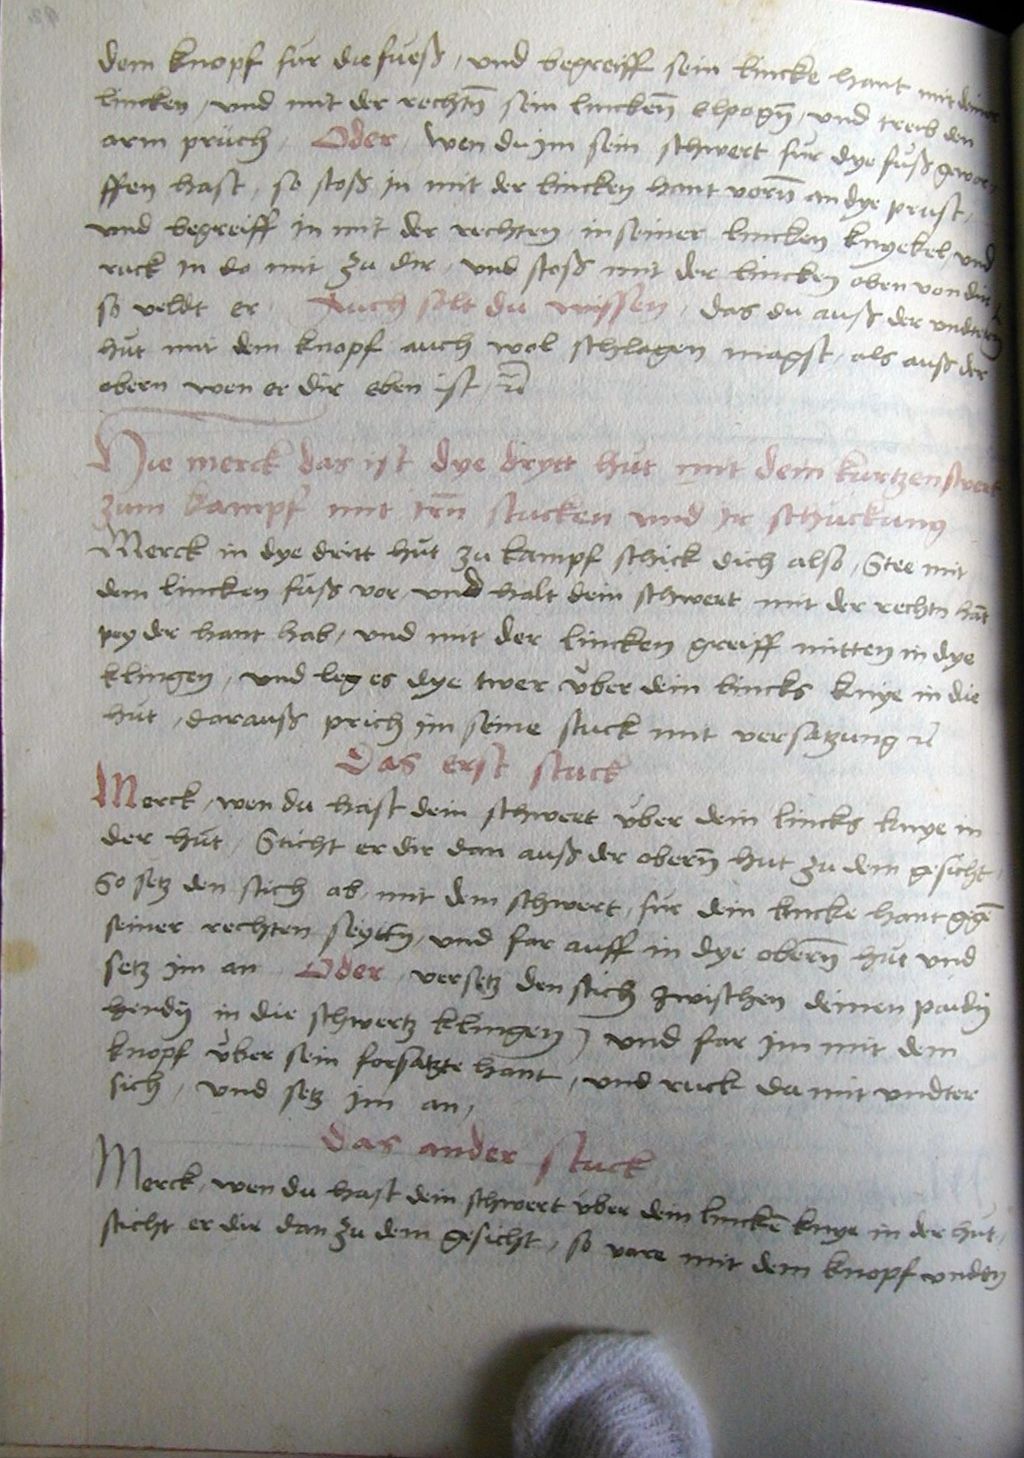 dem knopf für die fueß / und begreiff sein lincke hant mit deiner
lincken / und mit der rechtñ sein linckeñ elpogñ / und treib den
arm prüch / Oder / wen du im sein schwert für dye füß gewor
ffen hast / so stoß in mit der lincken hant vorñ an dye prust /
und begreiff in mit der rechten in seiner lincken knyekel / und
ruck in do mit zu dir / und stoß mit der lincken oben von dir /
so veldt er / Auch solt du wissen / das du auß der undtern
hüt mit dem knopf auch wol schlagen magst / als auß der
obern wen er dir eben ist / rc
Hie merck das ist dye drytt hüt mit dem kurtzen swert
zum kampf mit irñ stucken und ir schickung
Merck in dye dritt hüt zu kampf schick dich also / Stee mit
dem lincken füß vor und halt dein schwert mit der rechtn hãt
pey der hant hab / und mit der lincken greiff mitten in dye
klingen / und leg es dye twer über dein lincks knye in die
hüt / darauß prich im seine stuck mit versatzung rc
Das erst stuck
Merck / wen du hast dein schwert über dein lincks knye in
der hüt / Sticht er dir dan auß der oberñ hut zu dem gesicht /
So setz den stich ab mit dem schwert / für dein lincke hant gegẽ
seiner rechten seyttñ / und far auff in dye oberñ hüt und
setz im an Oder / versetz den stich zwischen deinen paidñ
hendñ in die schwertz klingen / und far im mit dem
knopf über sein forsatzte hant / und ruck da mit undter
sich / und setz im an /
Das ander stuck
Merck / wen du hast dein schwert über dein linckẽ knye in der hüt /
sticht er dir dan zu dem gesicht / so vare mit dem knopf unden